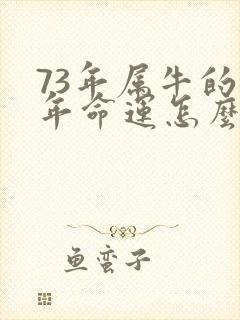 73年属牛的
年命运怎麽
鱼蛮子